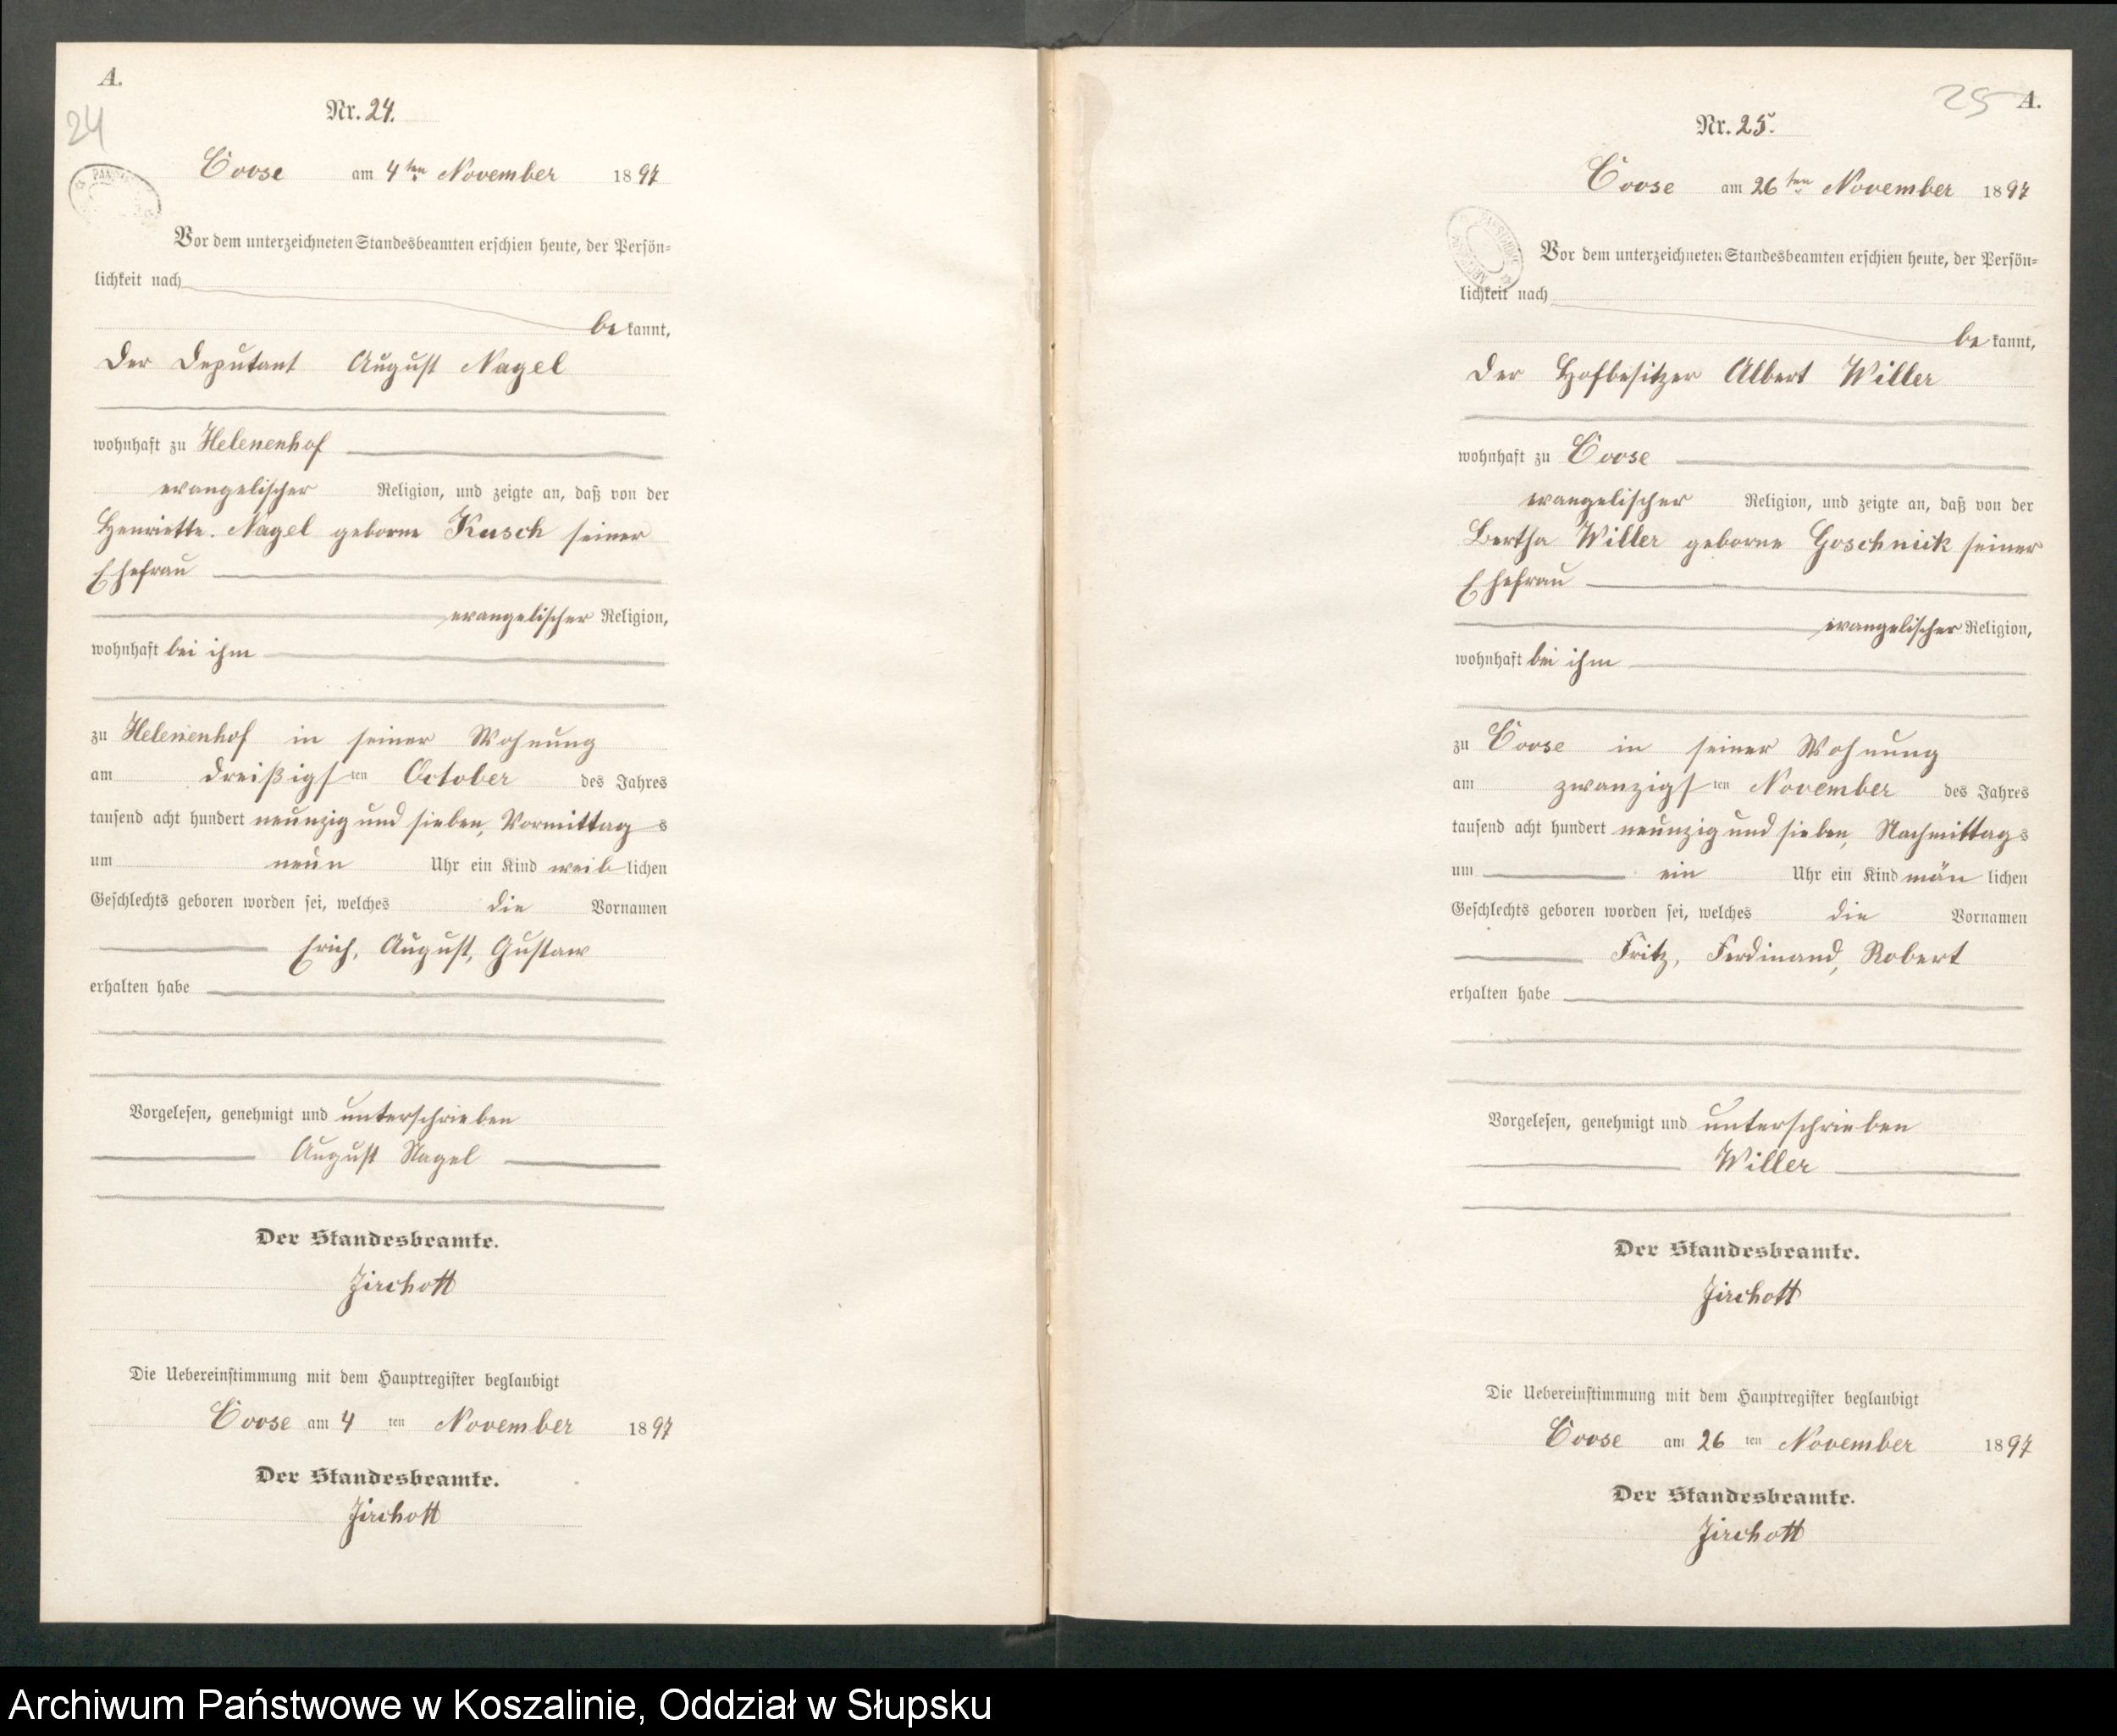 A.
24
Nr. 24.
Coose am 4ten November 1897
Vor dem unterzeichneten Standesbeamten erschien heute, der Persön=
lichkeit nach
be kannt,
Der Deputant August Nagel
wohnhaft zu Helenenhof
evangelischer Religion, und zeigte an, daß von der
Henriette Nagel geborne Kusch seiner
Ehefrau
evangelischer Religion,
wohnhaft bei ihm
zu Helenenhof in seiner Wohnung
am dreißigsten October des Jahres
tausend acht hundert neunzig und sieben, Vormittags
um neun Uhr ein Kind weiblichen
Geschlechts geboren worden sei, welches die Vornamen
Erich, August, Gustaw
erhalten habe
Vorgelesen, genehmigt und unterschrieben
August Nagel
Der Standesbeamte.
Jirchott
Die Uebereinstimmung mit dem Hauptregister beglaubigt
Coose am 4 ten November 1897
Der Standesbeamte.
Jirchott
25 A.
Nr. 25.
Coose am 26ten November 1897
Vor dem unterzeichneten Standesbeamten erschien heute, der Persön=
lichkeit nach
be kannt,
Der Hofbesitzer Albert Willer
wohnhaft zu Coose
evangelischer Religion, und zeigte an, daß von der
Bertha Willer geborne Goschnick seiner
Ehefrau
evangelischer Religion,
wohnhaft bei ihm
zu Coose in seiner Wohnung
am zwanzigsten November des Jahres
tausend acht hundert neunzig und sieben, Nachmittags
um ein Uhr ein Kind män lichen
Geschlechts geboren worden sei, welches die Vornamen
Fritz, Ferdinand, Robert
erhalten habe
Vorgelesen, genehmigt und unterschrieben
Willer
Der Standesbeamte.
Jirchott
Die Uebereinstimmung mit dem Hauptregister beglaubigt
Coose am 26 ten November 1897
Der Standesbeamte.
Jirchott
Archiwum Państwowe w Koszalinie, Oddział w Słupsku